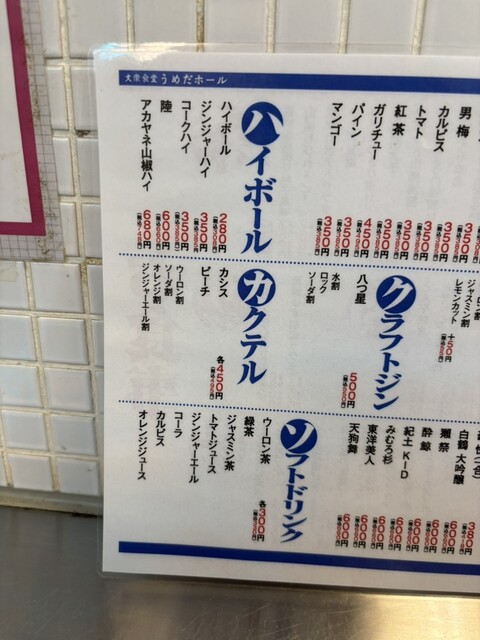 大衆食堂うめだホール
男梅 350円
カルピス 350円
トマト 350円
紅茶 350円
ガリチュー 350円
パイン 450円
マンゴー 350円
350円
ハイボール
ハイボール 280円
ジンジャーハイ 350円
コークハイ 350円
陸 600円
アカヤネ山椒ハイ 680円
ジャスミン割
レモンカット +50円
クラフトジン
八つ星 500円
水割
ロック
ソーダ割
カクテル
カシス
ピーチ
各450円
ウーロン割
ソーダ割
オレンジ割
ジンジャーエール割
380円
白鶴 大吟醸 600円
獺祭 600円
酔鯨 600円
紀土 KID 600円
みむろ杉 600円
東洋美人 600円
天狗舞 600円
ソフトドリンク
ウーロン茶
緑茶
ジャスミン茶
トマトジュース
ジンジャーエール
コーラ
カルピス
オレンジジュース
各300円